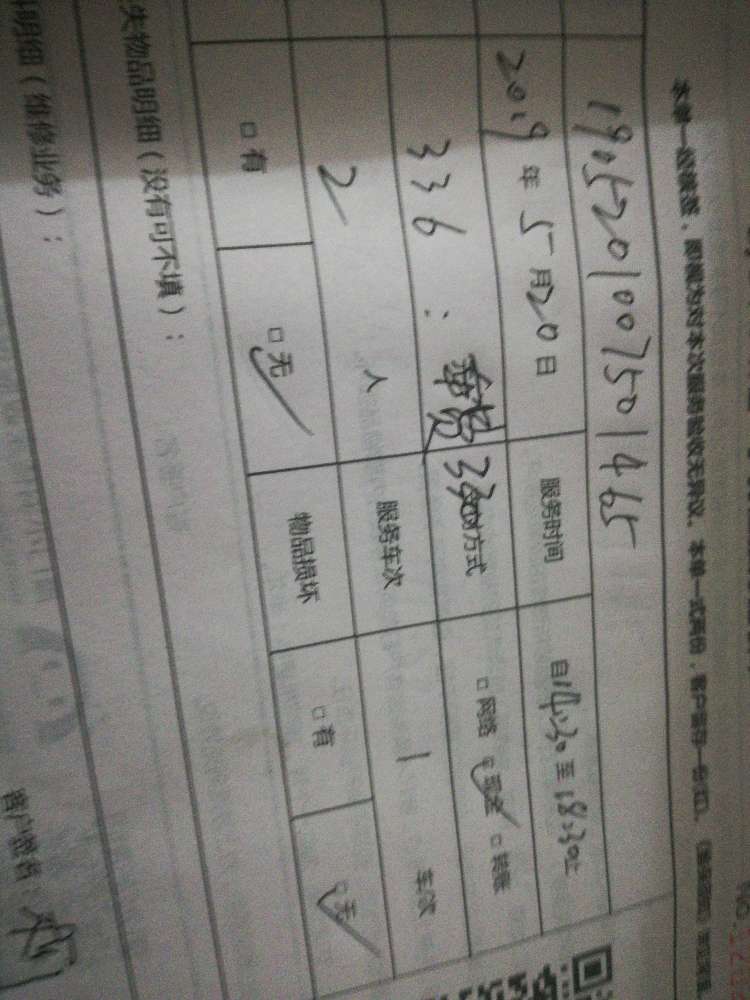 本单一经核签，即视为对本次服务验收无异议。本单一式两份，客户留存一份
190520100750 1465
2019年5月20日 服务时间 自14:30至18:30止
336： 方式 □网络 □现金✓ □转账
2 人 服务车次 1 车/次
□有 □无✓ 物品损坏 □有 □无✓
失物品明细（没有可不填）：
明细（维修业务）：
客户签名：